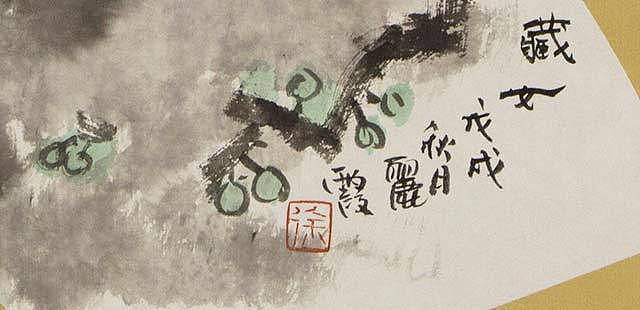 藏女
戊戌
秋月
麗霞
徐